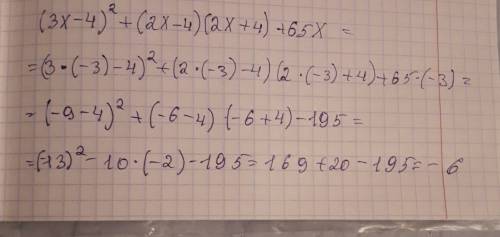 (3x-4)² + (2x-4)(2x+4) + 65x =
= (3·(-3)-4)² + (2·(-3)-4)(2·(-3)+4) + 65·(-3) =
= (-9-4)² + (-6-4)·(-6+4) - 195 =
= (-13)² - 10·(-2) - 195 = 169 + 20 - 195 = - 6